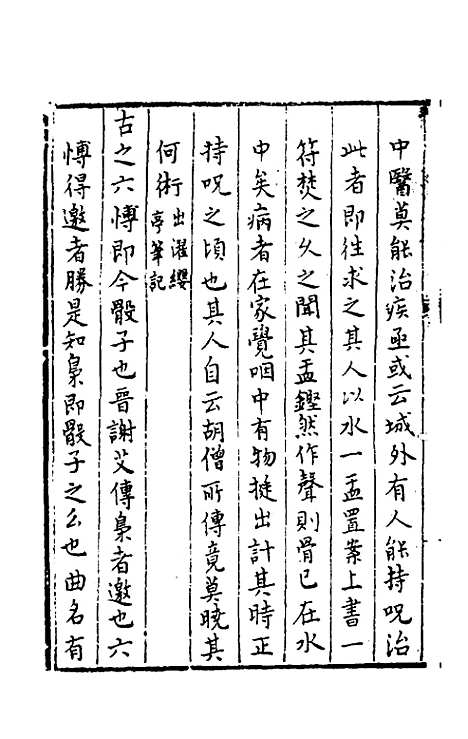 中醫莫能治疾亟或云城外有人能持呪治
此者即往求之其人以水一盂置案上書一
符焚之久之聞其盂鏗然作聲則骨已在水
中矣病者在家覺咽中有物挺出計其時正
持呪之頃也其人自云胡僧所傳竟莫曉其
何術出濯纓亭筆記
古之六愽即今骰子也晉謝艾傳梟者邀也六
愽得邀者勝是知梟即骰子之么也曲名有